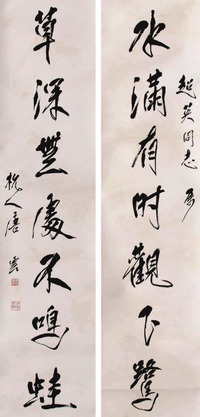 水满有时观下鹭
超英同志属
草深无处不鸣蛙
杭人唐云